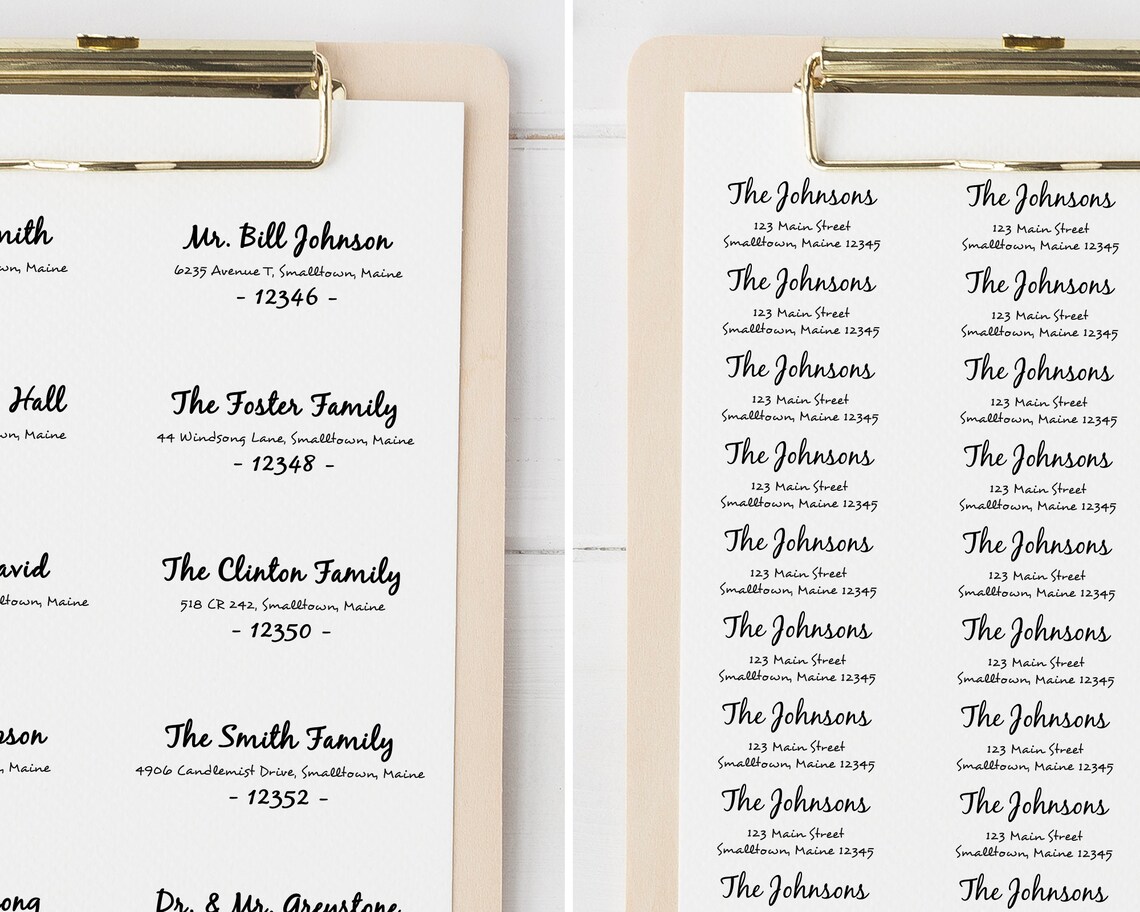 Mr. Bill Johnson
6235 Avenue T, Smalltown, Maine
- 12346 -
Hall
Maine
The Foster Family
44 Windsong Lane, Smalltown, Maine
- 12348 -
Maine
The Clinton Family
518 CR 242, Smalltown, Maine
- 12350 -
Maine
The Smith Family
4906 Candlemist Drive, Smalltown, Maine
- 12352 -
Maine
Dr. & Mr. Greystone
The Johnsons
123 Main Street
Smalltown, Maine 12345
The Johnsons
123 Main Street
Smalltown, Maine 12345
The Johnsons
123 Main Street
Smalltown, Maine 12345
The Johnsons
123 Main Street
Smalltown, Maine 12345
The Johnsons
123 Main Street
Smalltown, Maine 12345
The Johnsons
123 Main Street
Smalltown, Maine 12345
The Johnsons
123 Main Street
Smalltown, Maine 12345
The Johnsons
123 Main Street
Smalltown, Maine 12345
The Johnsons
The Johnsons
123 Main Street
Smalltown, Maine 12345
The Johnsons
123 Main Street
Smalltown, Maine 12345
The Johnsons
123 Main Street
Smalltown, Maine 12345
The Johnsons
123 Main Street
Smalltown, Maine 12345
The Johnsons
123 Main Street
Smalltown, Maine 12345
The Johnsons
123 Main Street
Smalltown, Maine 12345
The Johnsons
123 Main Street
Smalltown, Maine 12345
The Johnsons
123 Main Street
Smalltown, Maine 12345
The Johnsons